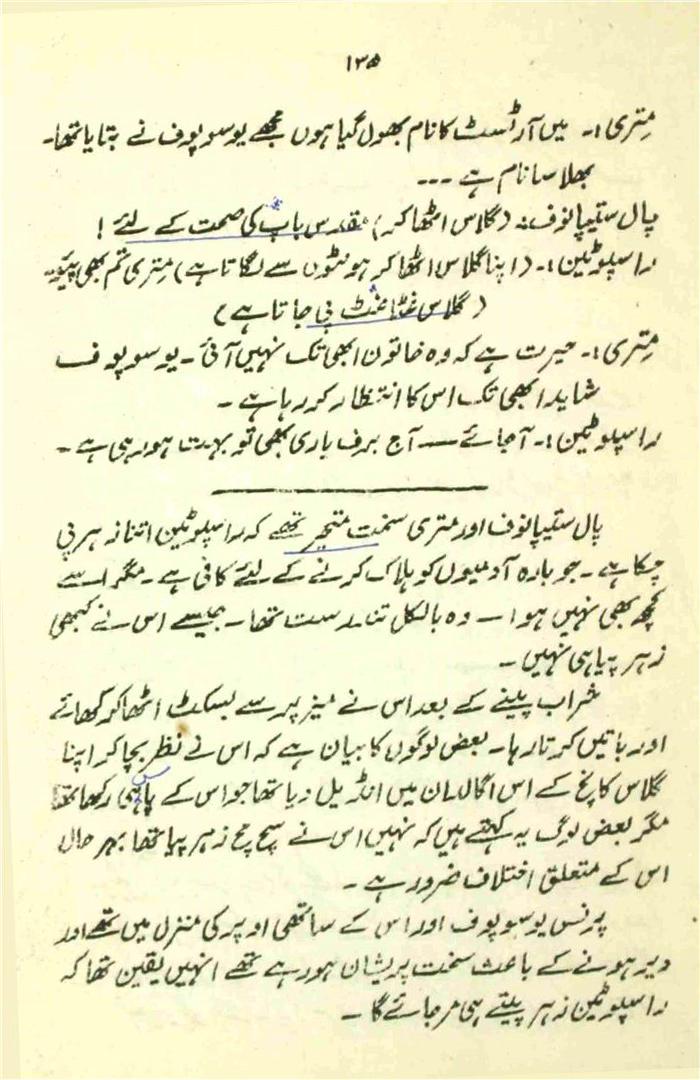 ۱۳۵
متری :۔ میں آرٹسٹ کا نام بھول گیا ہوں مجھے یوسوپوف نے بتایا تھا۔
بھلا سا نام ہے ۔۔۔
پال ستیپانوف :۔ (گلاس اٹھا کر) مقدس باپ کی صحت کے لئے !
راسپوٹین :۔ (اپنا گلاس اٹھا کر ہونٹوں سے لگاتا ہے) متری تم بھی پیئو۔
(گلاس غٹا غٹ پی جاتا ہے)
متری :۔ حیرت ہے کہ وہ خاتون ابھی تک نہیں آئی ۔ یوسوپوف
شاید ابھی تک اس کا انتظار کر رہا ہے ۔
راسپوٹین :۔ آ جائے — آج برف باری بھی تو بہت ہو رہی ہے ۔
پال ستیپانوف اور متری سخت متحیر تھے کہ راسپوٹین اتنا زہر پی
چکا ہے ۔ جو بارہ آدمیوں کو ہلاک کرنے کے لئے کافی ہے ۔ مگر اسے
کچھ بھی نہیں ہوا — وہ بالکل تندرست تھا ۔ جیسے اس نے کبھی
زہر پیا ہی نہیں ۔
شراب پینے کے بعد اس نے میز پر سے بسکٹ اٹھا کر کھائے
اور باتیں کرتا رہا۔ بعض لوگوں کا بیان ہے کہ اس نے نظر بچا کر اپنا
گلاس کانچ کے اس اگالدان میں انڈیل دیا تھا جو اس کے پاس ہی رکھا تھا
مگر بعض لوگ یہ کہتے ہیں کہ نہیں اس نے سچ مچ زہر پیا تھا بہر حال
اس کے متعلق اختلاف ضرور ہے ۔
پرنس یوسوپوف اور اس کے ساتھی اوپر کی منزل میں تھے اور
دیر ہونے کے باعث سخت پریشان ہو رہے تھے انہیں یقین تھا کہ
راسپوٹین زہر پیتے ہی مر جائے گا ۔